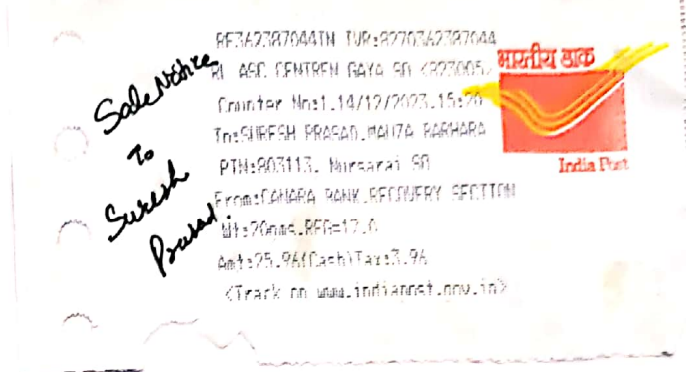 RF362387044IN IVR:8270362387044
RL ASC CENTREN GAYA SO <823005>
Counter No:1,14/12/2023,15:20
To:SURESH PRASAD,MAUZA BARHARA
PIN:803113, Nursarai SO
From:CANARA BANK,RECOVERY SECTION
Wt:20gms,REG=17.0
Amt:25.96(Cash)Tax:3.96
<Track on www.indiapost.gov.in>
भारतीय डाक
India Post
Sale Notice
To
Suresh
Prasad.